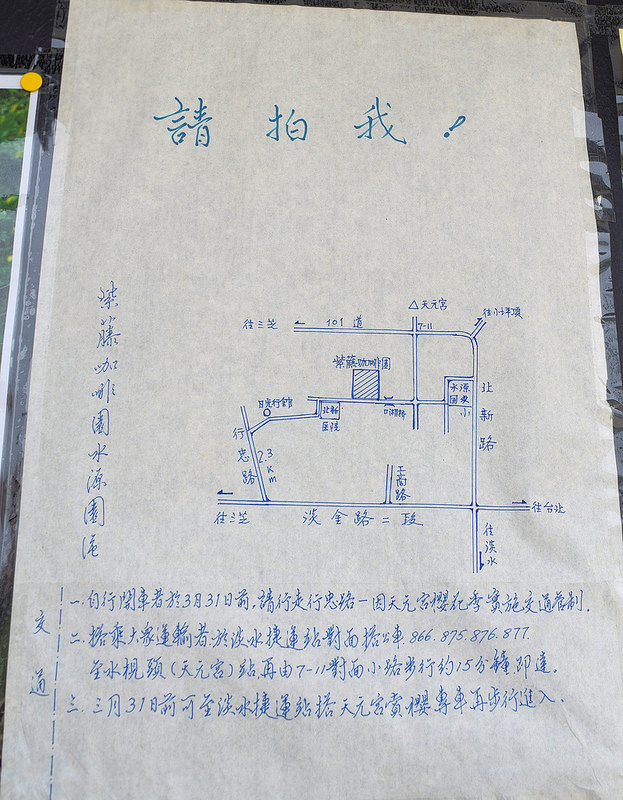 請拍我!
紫藤咖啡園水源園區
△天元宮
往三芝
101道
7-11
往小坪頂
紫藤咖啡園
水源
國小
北新路
日光行館
北新
醫院
口湖橋
行忠路
2.3Km
工商路
往三芝
淡金路二段
往台北
往淡水
交通
一.自行開車者於3月31日前,請行走行忠路-因天元宮櫻花季實施交通管制.
二.搭乘大眾運輸者於淡水捷運站對面搭公車866.875.876.877.
至水梘頭(天元宮)站再由7-11對面小路步行約15分鐘即達.
三.三月31日前可至淡水捷運站搭天元宮賞櫻專車再步行進入.